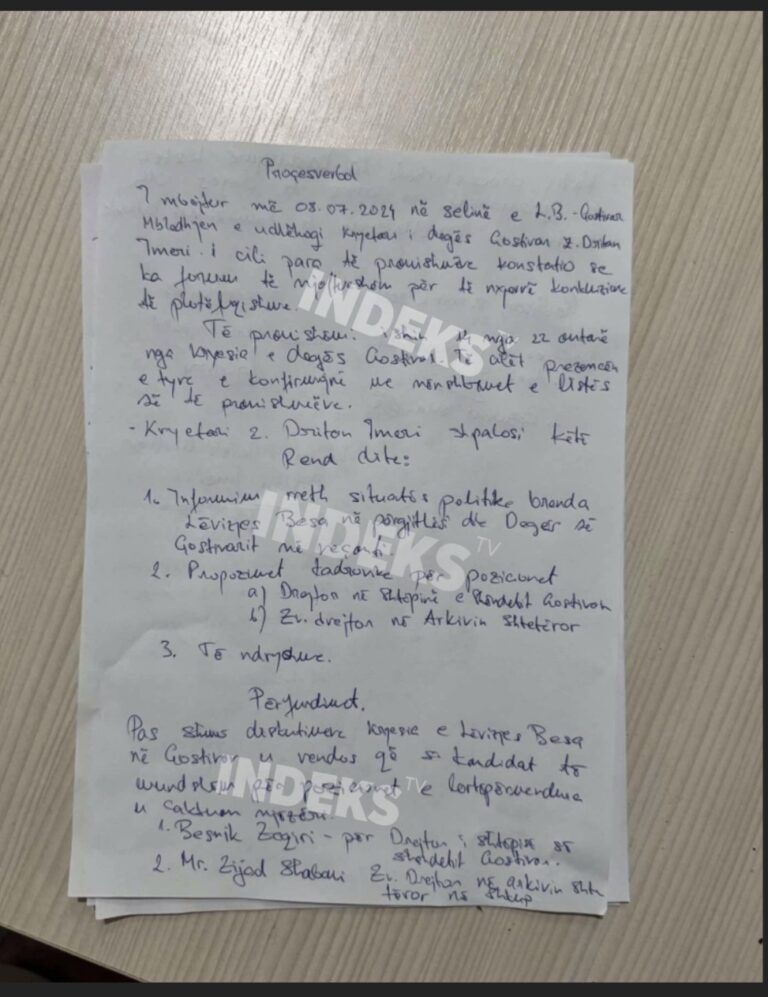 Proçesverbal
I mbajtur më 08.07.2024 në selinë e L.B. - Gostivar
Mbledhjen e udhëhoqi kryetari i degës Gostivar z. Dritan
Imeri. i cili para të pranishmëve konstatio se
ka forum të mjaftueshem për të nxjerrë konkluzione
të plotëfuqishme.
Të pranishem: ishin 14 nga 22 antarë
nga kryesia e degës Gostivar. Të cilët prezencën
e tyre e konfirmojnë me nënshkrimet e listës
së të pranishmëve.
- Kryetari z. Driton Imeri shpalosi këtë
Rend dite:
1. Informim rreth situatës politike brenda
Lëvizjes Besa në përgjithësi dhe Degës së
Gostivarit në veçanti.
2. Propozimet kadrovike për pozicionet
a) Drejtor në shtëpinë e Shëndetit Gostivar
b) Zv. drejtor në Arkivin Shtetëror
3. Të ndryshme.
Përfundimet.
Pas shumë diskutimeve kryesia e Lëvizjes Besa
në Gostivar u vendos që si kandidat të
mundshëm për pozicionet e lartëpërmendura
u caktuan njëzëri:
1. Besnik Zeqiri - për Drejtor i shtëpisë së
shëndetit Gostivar.
2. Mr. Zijad Shabani Zv. Drejtor në arkivin shte
tëror në Shkup
INDEKS TV
INDEKS TV
INDEKS TV